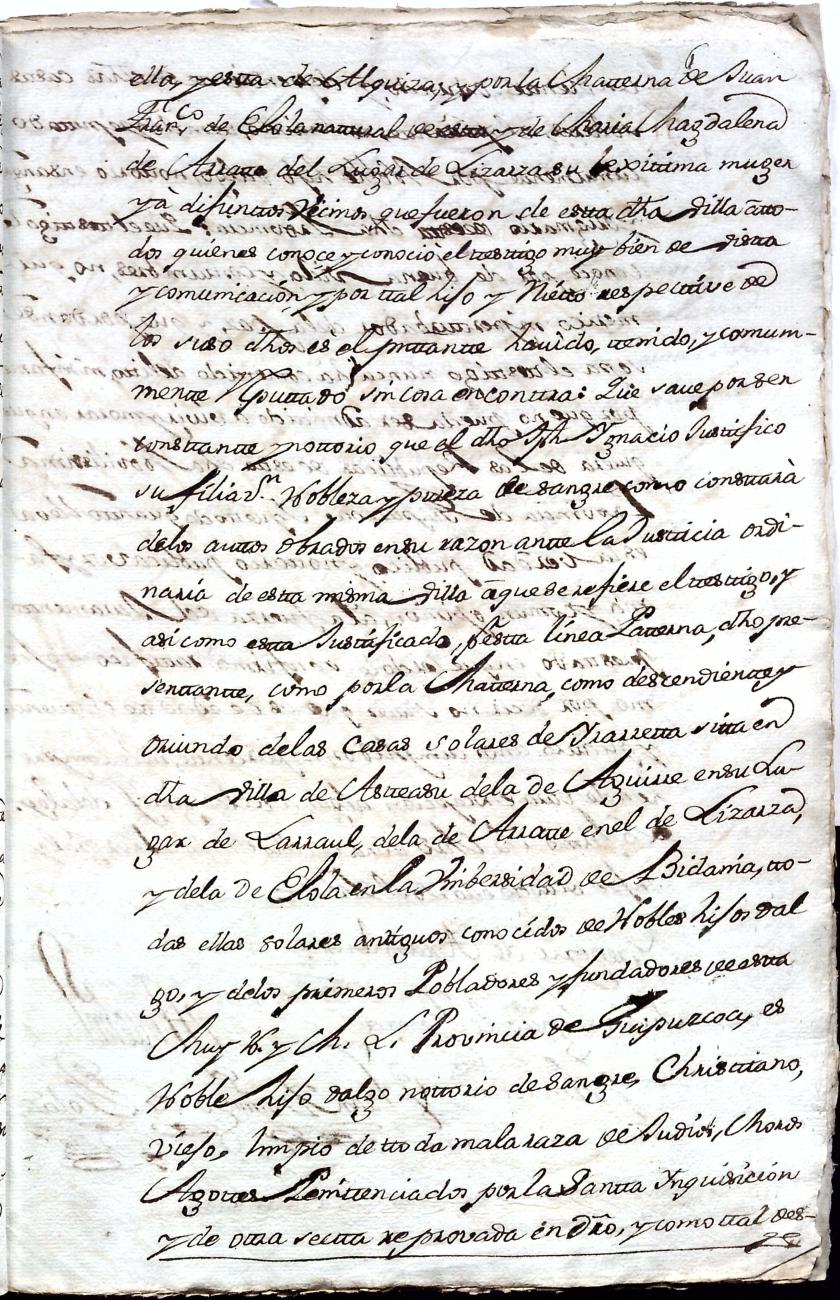 ella, y esta de Alquiza, y por la Matterna de Juan
Fran.co de Elola natural de esta y de Maria Magdalena
de Arratte del Lugar de Lizarza su lexitima muger
yà difunttos Vecinos que fueron de estta dha Villa âtto-
dos quienes conoce y conoció el testtigo muy bien de vistta
y comunicación, y por ttal hijo y Nietto respectivè de
los suso dhos es el presentante havido, ttenido, y comun-
mente reputtado sin cosa en conttra: Que save por ser
constante y nottorio que el dho Jph Ygnacio Justtifico
su filiaz.n Nobleza y pureza de sangre como consttarà
delos auttos obrados en su razon antte la Justicia ordi-
naria de estta misma Villa âque se refiere el testtigo, y
asi como estta Justtificado, por estta linea Patterna, dho pre-
senttantte, como por la Matterna, como descendiente y
oriundo delas Casas solares de Yrarretta sitta en
dha Villa de Astteasu dela de Aguirre en su Lu-
gar de Larraul, dela de Arratte en el de Lizarza,
y dela de Elola en la Vnibersidad de Bidania, tto-
das ellas solares antiguos conocidos de Nobles hijos dal
go, y delos primeros Pobladores y fundadores de estta
Muy N. y M. L. Provincia de Guipuzcoa, es
Noble hijo dalgo nottorio de sangre, Christtiano,
viejo, limpio de ttoda mala raza de Judios, Moros
Agottes Penittenciados por la Santta Ynquisición
y de otta sectta reprovada en dro, y como ttal des-